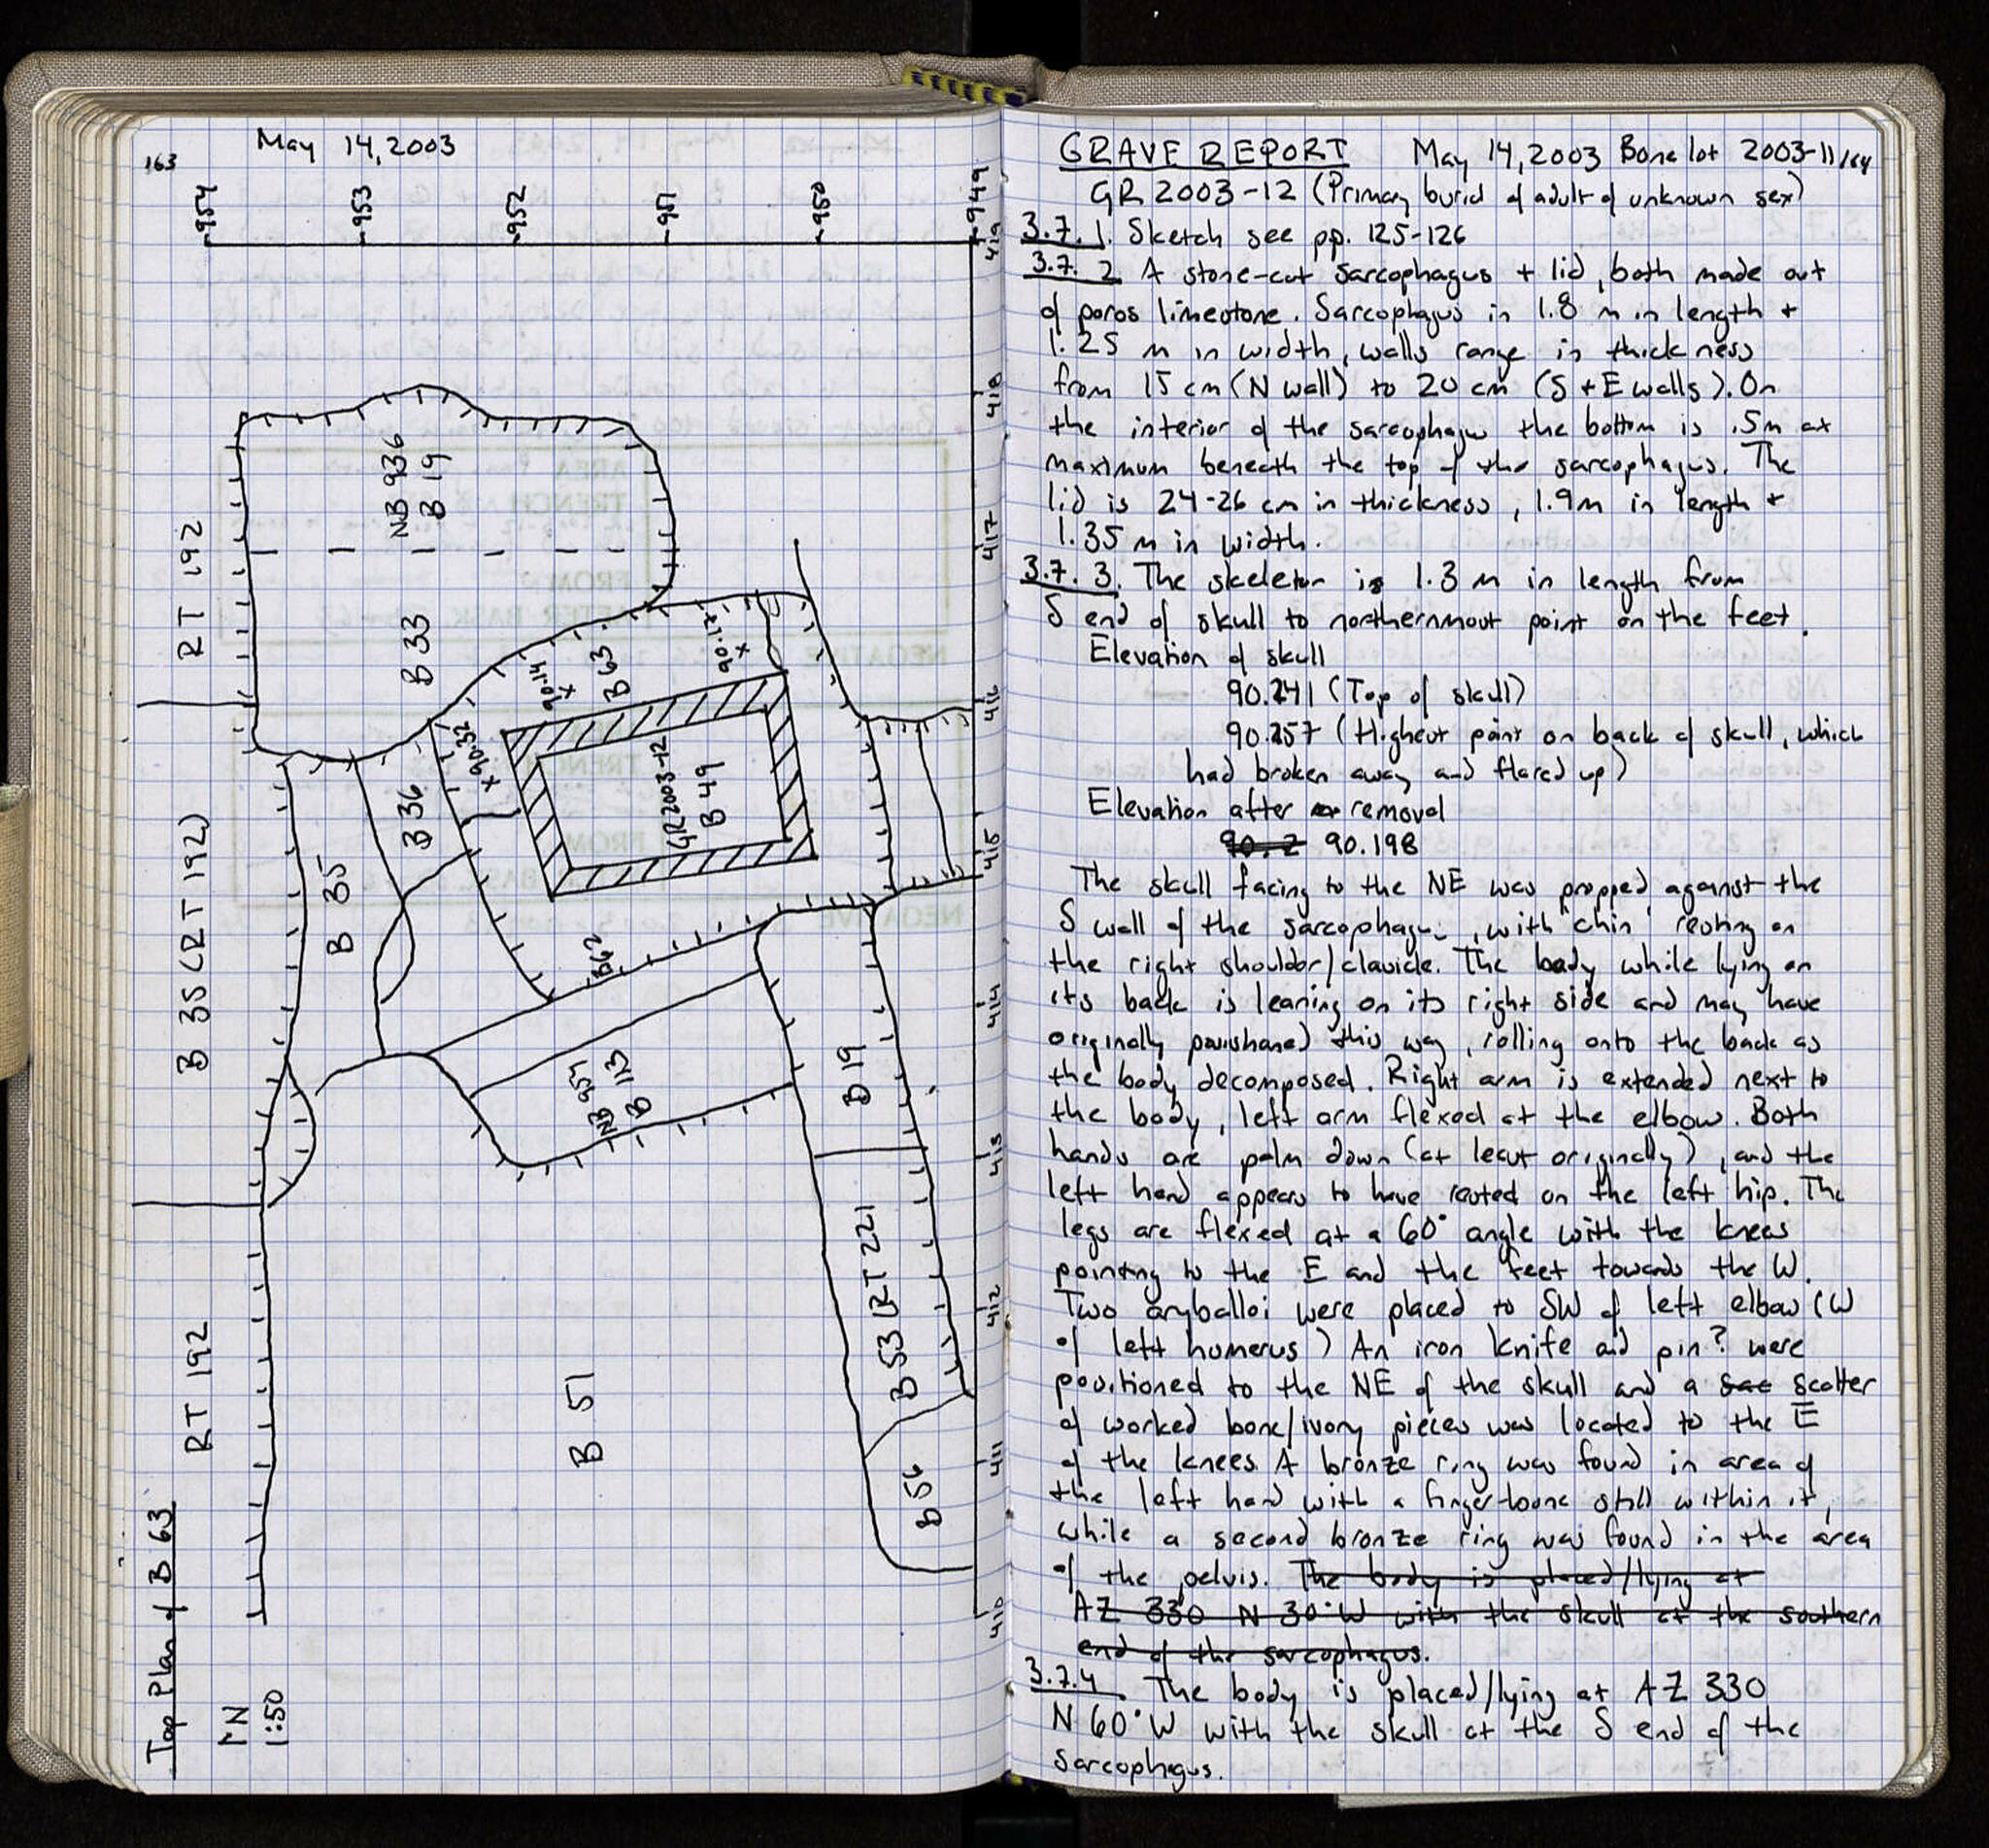 163
May 14, 2003
954
953
952
951
950
949
419
418
417
416
415
414
413
412
411
410
RT 192
NB 936
B 19
B 33
B 63
90.14
x
90.17
x
x 90.32
B 36
GR 2003-12
B 49
B 35 (RT 192)
B 35
B 62
NB 957
B 113
B 19
RT 192
B 51
B 53 (RT 221)
B 56
Top Plan of B 63
N
1:50
GRAVE REPORT May 14, 2003 Bone lot 2003-11 164
GR 2003-12 (Primary burial of adult of unknown sex)
3.7.1. Sketch see pp. 125-126
3.7.2 A stone-cut sarcophagus + lid, both made out
of poros limestone. Sarcophagus is 1.8 m in length +
1.25 m in width, walls range in thickness
from 15 cm (N wall) to 20 cm (S + E walls). On
the interior of the sarcophagus the bottom is .5m at
maximum beneath the top of the sarcophagus. The
lid is 24-26 cm in thickness, 1.9m in length +
1.35 m in width.
3.7.3. The skeleton is 1.3 m in length from
S end of skull to northernmost point on the feet.
Elevation of skull
90.241 (Top of skull)
90.257 (Highest point on back of skull, which
had broken away and flared up)
Elevation after removal
90.2 90.198
The skull facing to the NE was propped against the
S wall of the sarcophagus, with "chin" resting on
the right shoulder/clavicle. The body while lying on
its back is leaning on its right side and may have
originally this way, rolling onto the back as
the body decomposed. Right arm is extended next to
the body, left arm flexed at the elbow. Both
hands are palm down (at least originally), and the
left hand appears to have rested on the left hip. The
legs are flexed at a 60° angle with the knees
pointing to the E and the feet towards the W.
Two aryballoi were placed to SW of left elbow (W
of left humerus) An iron knife and pin? were
positioned to the NE of the skull and a scatter
of worked bone/ivory pieces was located to the E
of the knees. A bronze ring was found in area of
the left hand with a finger-bone still within it,
while a second bronze ring was found in the area
of the pelvis. The body is placed/lying at
AZ 330 N 30°W with the skull at the southern
end of the sarcophagus.
3.7.4 The body is placed/lying at AZ 330
N 60°W with the skull at the S end of the
sarcophagus.